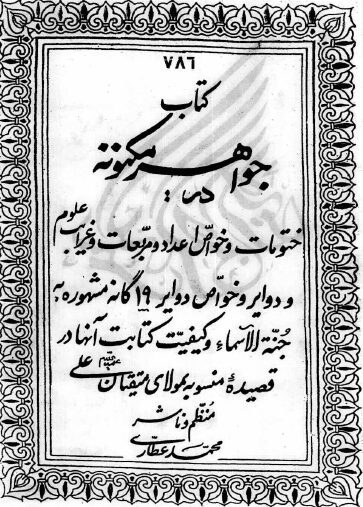 ۷۸۶
کتاب
جواهر مکنونه
در:
ختومات و خواص اعداد و مربعات و غرایب علوم
و دوایر و خواص دوایر ۱۹ گانه مشهوره به
جُنّة الاسماء و کیفیت کتابت آنها در
قصیدۀ منسوبه بمولای متقیان علی
منظم و ناشر
محمد عطاری